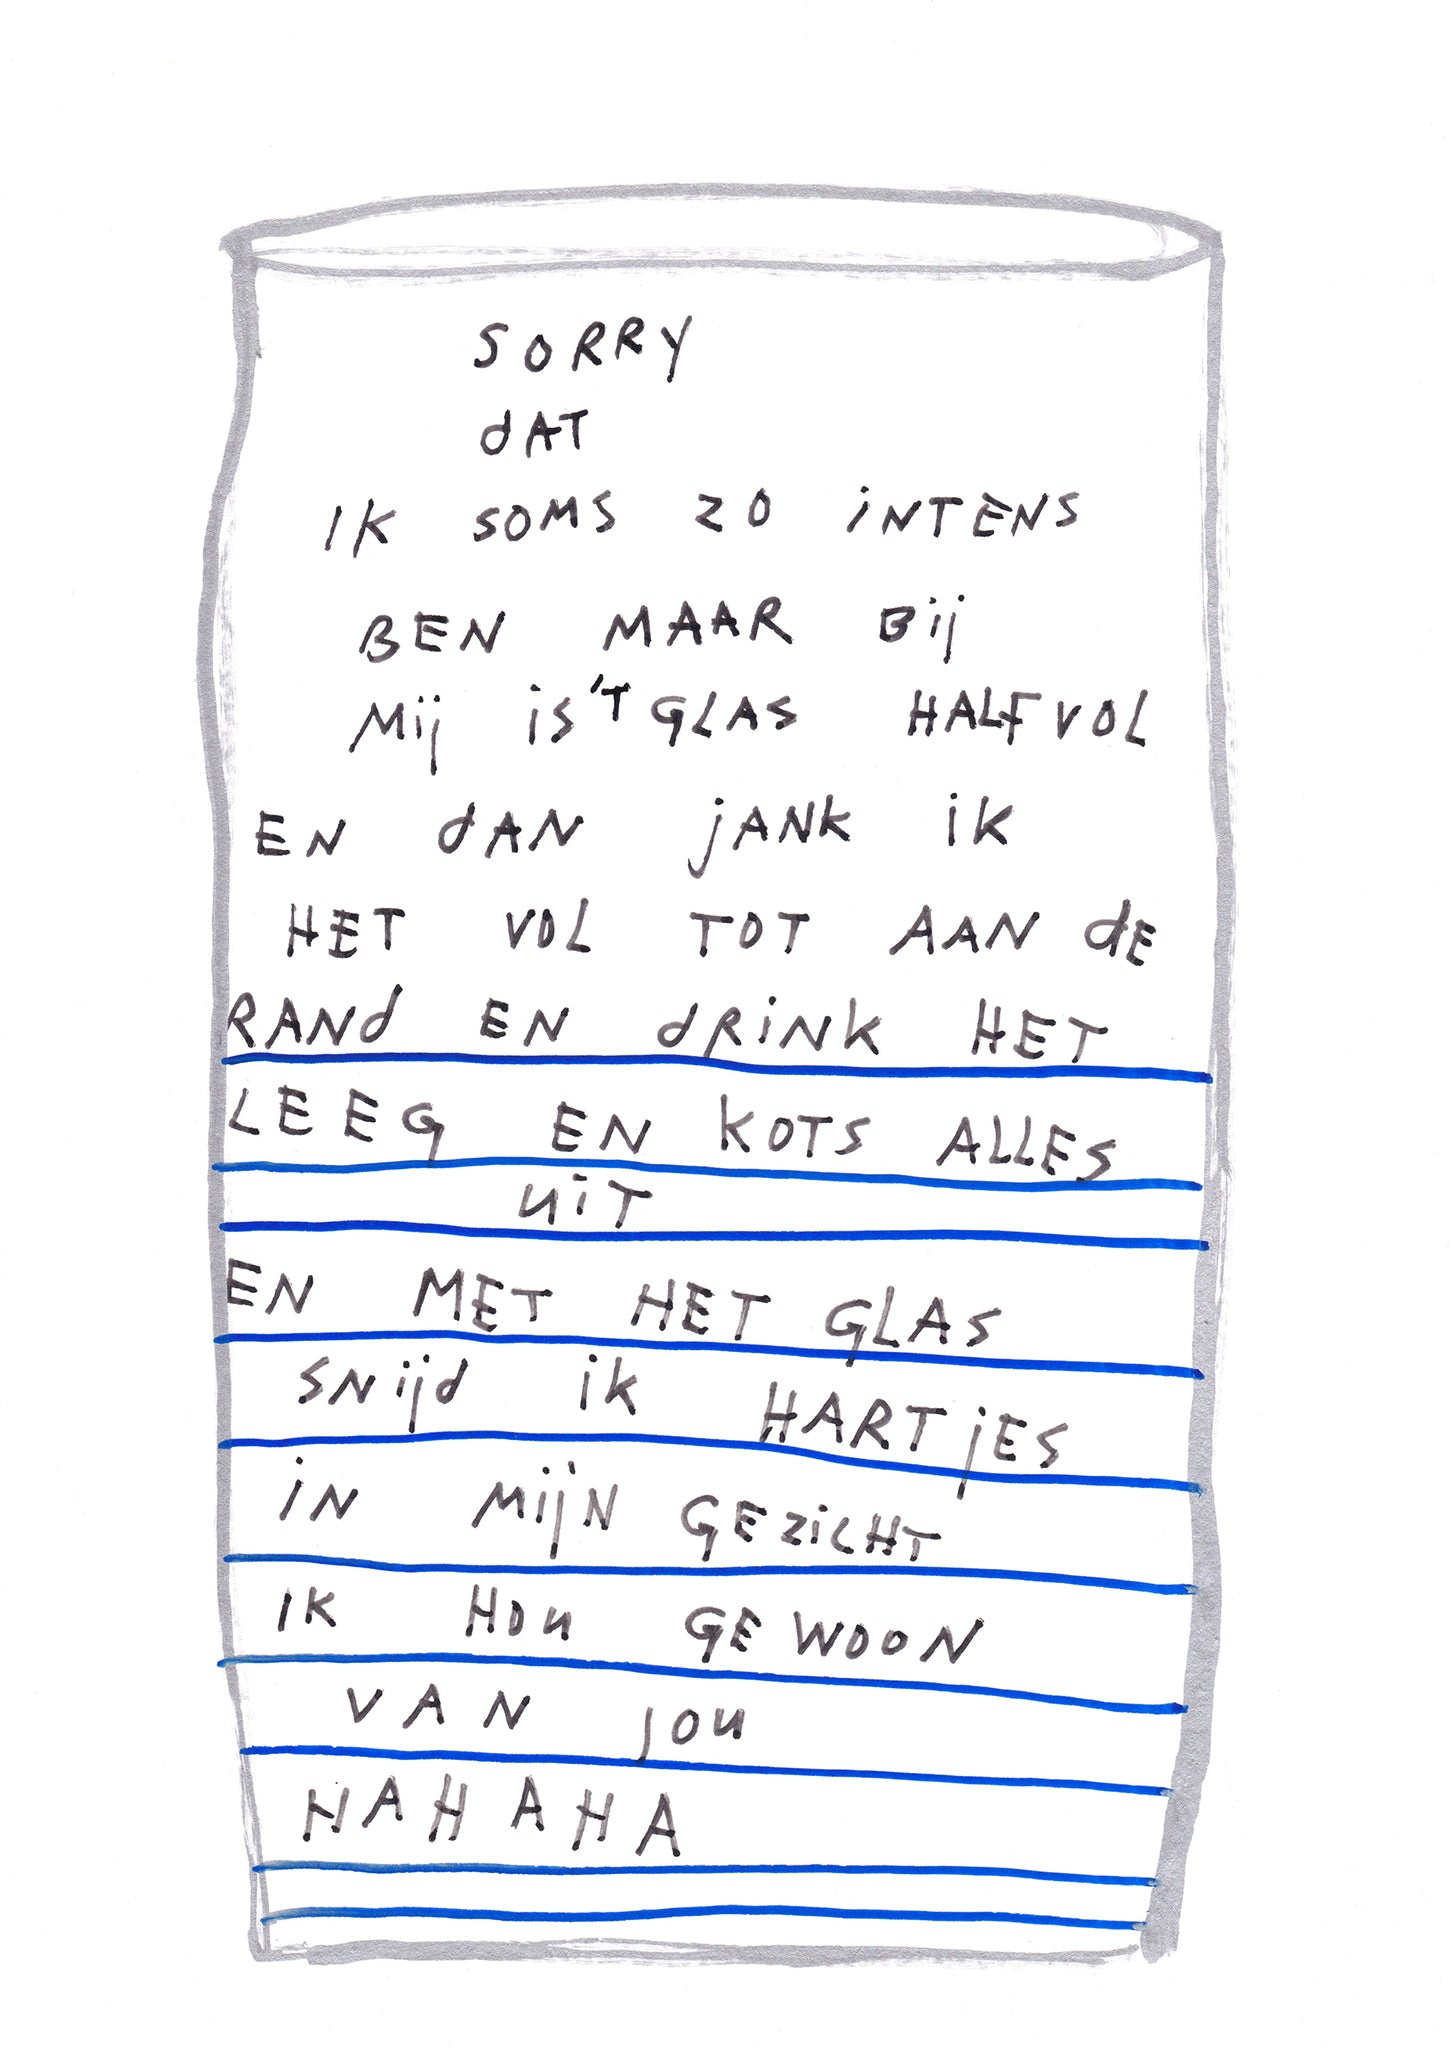 SORRY
dAT
IK SOMS ZO iNTENS
BEN MAAR Bij
Mij iS 'T GLAS HALFVOL
EN dAN jANK iK
HET VOL TOT AAN dE
RANd EN dRiNK HET
LEEG EN KOTS ALLES
UiT
EN MET HET GLAS
SNijd iK HARTjES
iN MijN GEZiCHT
IK HOU GEWOON
VAN jOU
HAHAHA